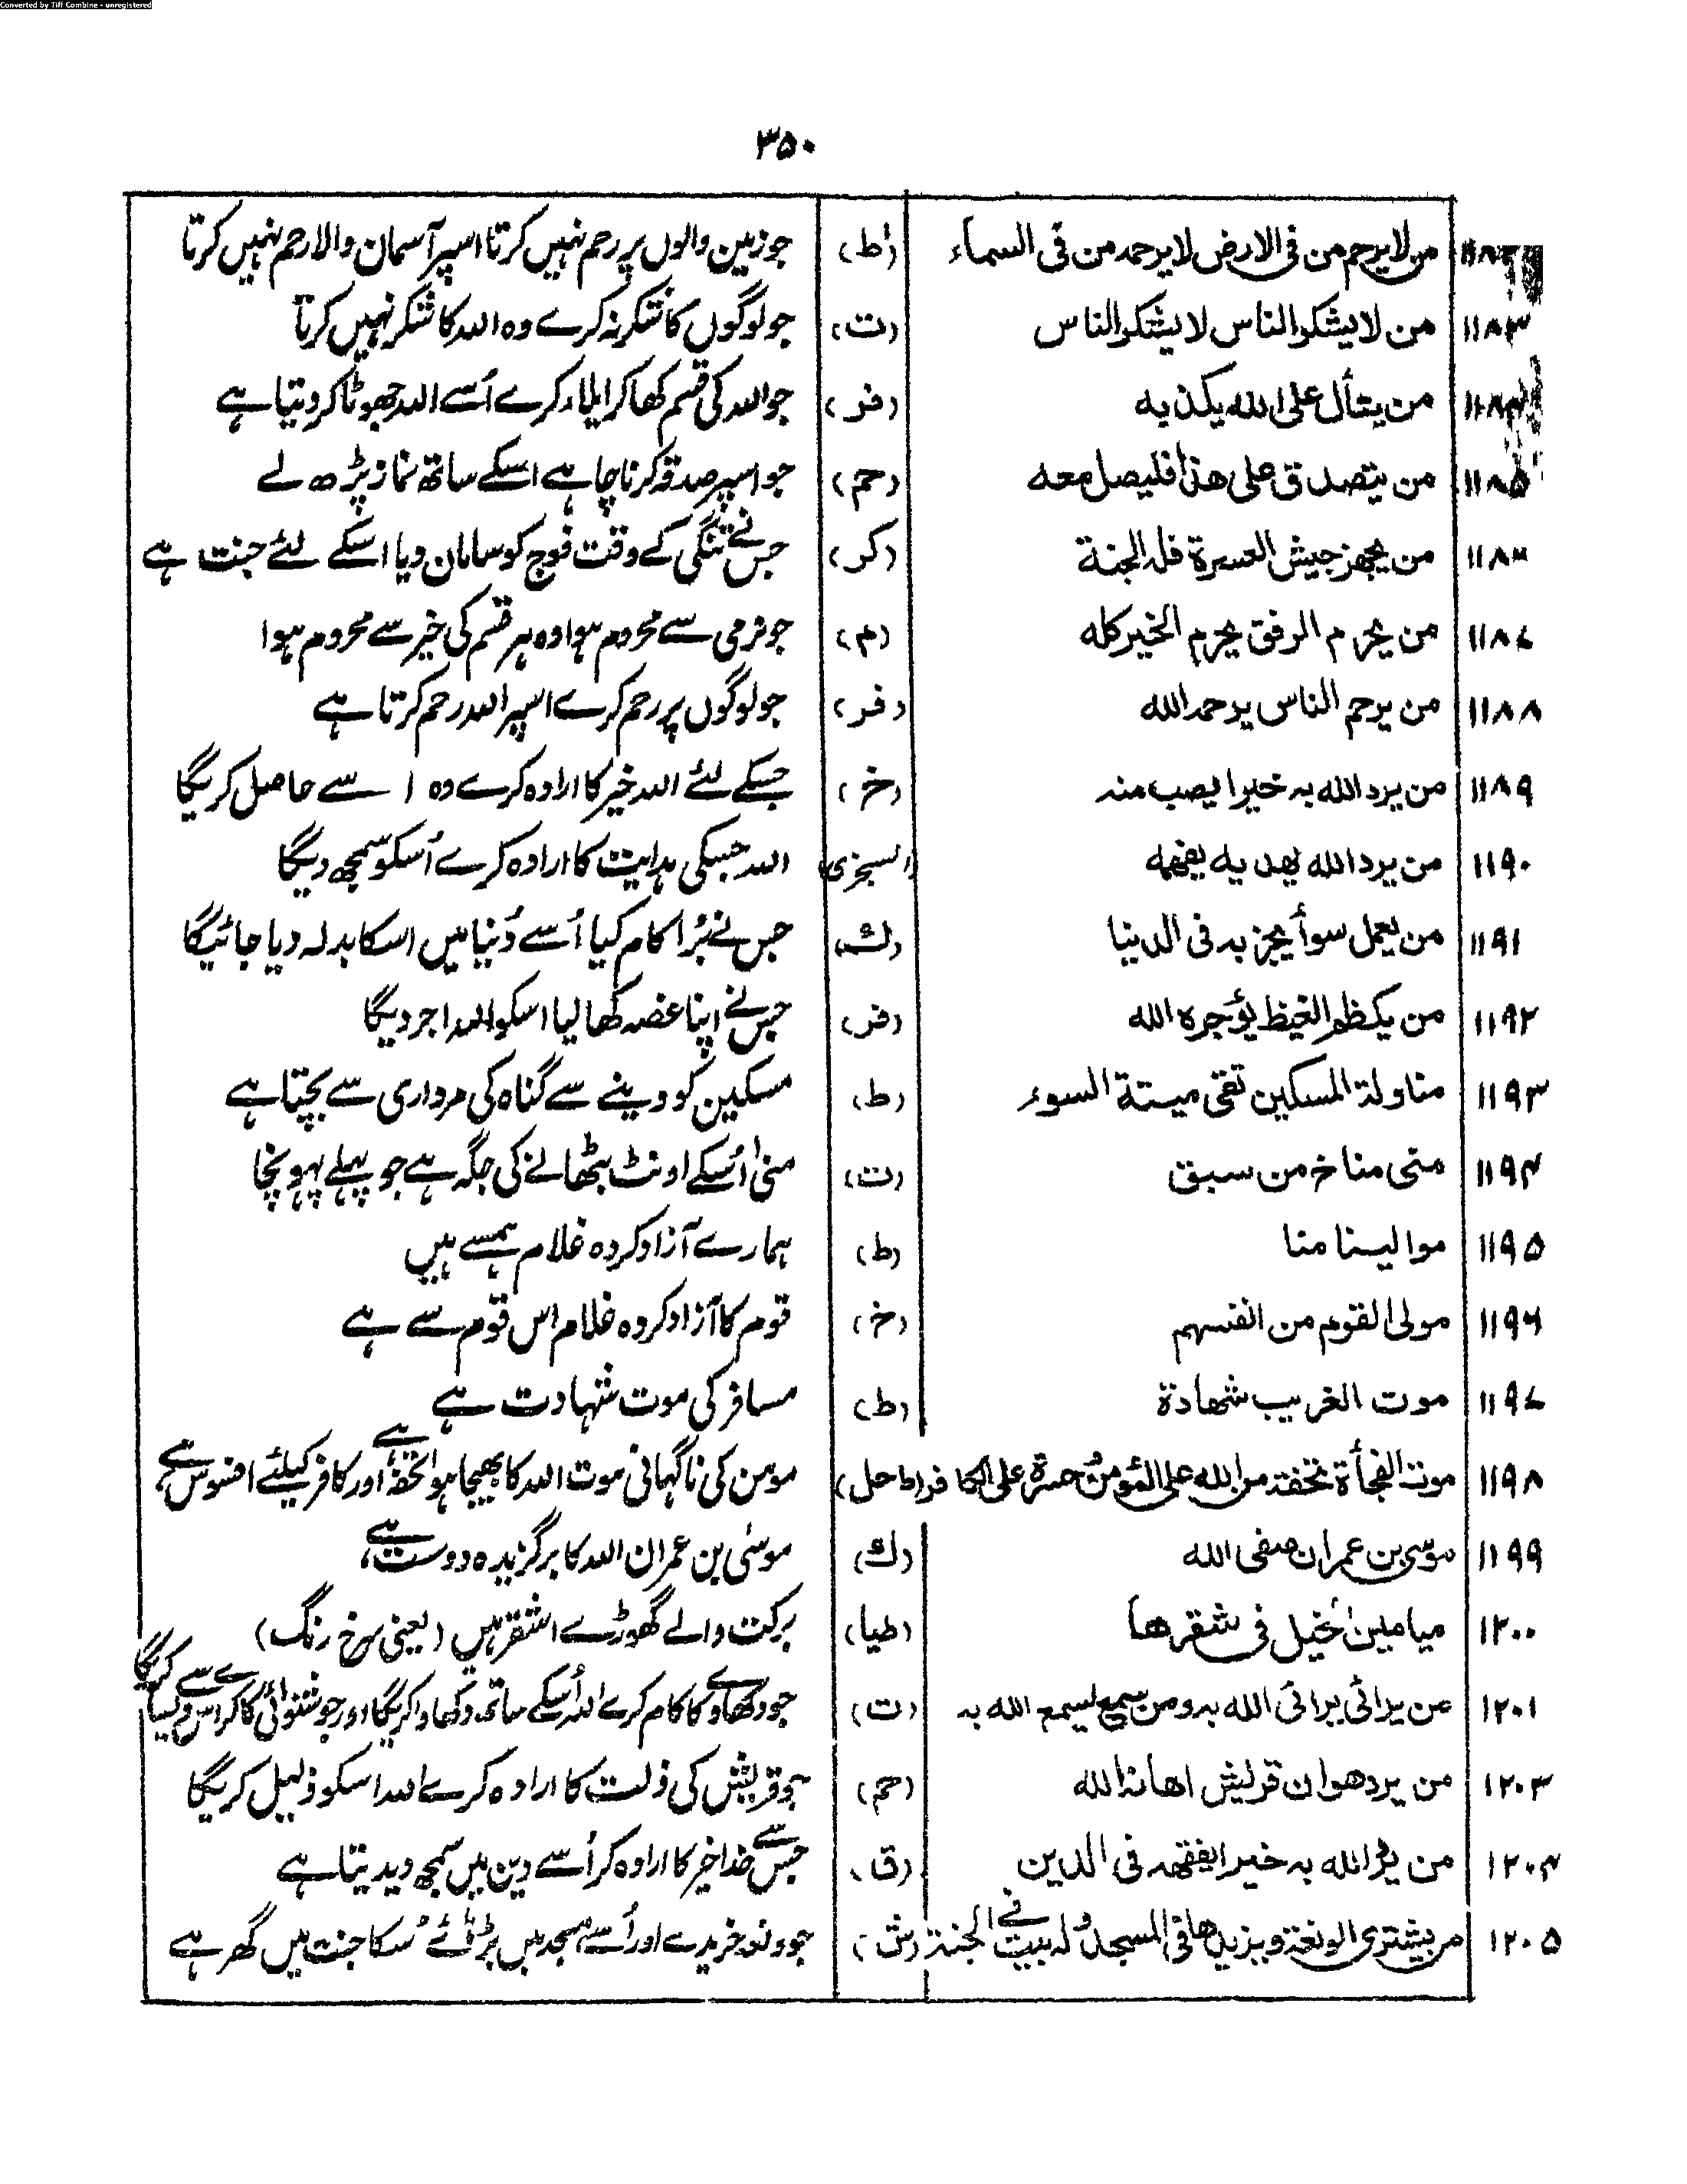 Converted by Tiff Combine - unregistered
۳۵۰
۱۱۸۲ من لا يرحم من فی الارض لا يرحمہ من فی السماء (ط) جو زمین والوں پر رحم نہیں کرتا اسپر آسمان والا رحم نہیں کرتا
۱۱۸۳ من لا يشكو الناس لا يشتكو الناس (ت) جو لوگوں کا شکر نہ کرے وہ اللہ کا شکر نہیں کرتا
۱۱۸۴ من يتأل على الله يكذبه (فر) جو اللہ کی قسم کھا کر ایلاء کرے اُسے اللہ جھوٹا کر دیتا ہے
۱۱۸۵ من يتصدق على هذا فليصل معه (حم) جو اسپر صدقہ کرنا چاہے اسکے ساتھ نماز پڑھ لے
۱۱۸۶ من يجهز جيش العسرة فله الجنة (كر) جس نے تنگی کے وقت فوج کو سامان دیا اسکے لئے جنت ہے
۱۱۸۷ من يحرم الرفق يحرم الخير كله (م) جو نرمی سے محروم ہوا وہ ہر قسم کی خیر سے محروم ہوا
۱۱۸۸ من يرحم الناس يرحمه الله (فر) جو لوگوں پر رحم کرے اسپر اللہ رحم کرتا ہے
۱۱۸۹ من يرد الله به خيرا يصب منه (خ) جسکے لئے اللہ خیر کا ارادہ کرے وہ اسے حاصل کریگا
۱۱۹۰ من يرد الله يهديه يفهمه (السجزی) اللہ جسکی ہدایت کا ارادہ کرے اُسکو سمجھ دیگا
۱۱۹۱ من يعمل سوأ يجز به فی الدنيا (ك) جس نے بُرا کام کیا اُسے دُنیا میں اسکا بدلہ دیا جائیگا
۱۱۹۲ من يكظم الغيظ يؤجره الله (فر) جس نے اپنا غصہ کھا لیا اسکو اللہ اجر دیگا
۱۱۹۳ مناولة المسكين تقى ميتة السوء (ط) مسکین کو دینے سے گناہ کی مرداری سے بچتا ہے
۱۱۹۴ منى مناخ من سبق (ت) منیٰ اُسکے اونٹ بٹھانے کی جگہ ہے جو پہلے پہونچا
۱۱۹۵ موالينا منا (ط) ہمارے آزاد کردہ غلام ہمسے ہیں
۱۱۹۶ مولى القوم من انفسهم (خ) قوم کا آزاد کردہ غلام اس قوم سے ہے
۱۱۹۷ موت الغريب شهادة (ط) مسافر کی موت شہادت ہے
۱۱۹۸ موت الفجأة تحفة من الله على المؤمن حسرة على الكافر (ط حل) مومن کی ناگہانی موت اللہ کا بھیجا ہوا تحفہ ہے اور کافر کیلئے افسوس ہے
۱۱۹۹ موسى بن عمران صفى الله (ك) موسیٰ بن عمران اللہ کا برگزیدہ دوست ہے
۱۲۰۰ ميامين الخيل فی شقرها (طيا) برکت والے گھوڑے اشقر ہیں (یعنی سرخ رنگ)
۱۲۰۱ من يرائی يرائی الله به ومن يسمع يسمع الله به (ت) جو دکھاوے کا کام کرے اللہ اُسکے ساتھ دکھاوا کریگا اور جو شنوائی کا کرے اس سے ویسا کریگا
۱۲۰۳ من يرد هوان قريش اهانه الله (حم) جو قریش کی ذلت کا ارادہ کرے اللہ اسکو ذلیل کریگا
۱۲۰۴ من يرد الله به خيرا يفقهه فی الدين (ق) جس سے خدا خیر کا ارادہ کر اُسے دین میں سمجھ دیدیتا ہے
۱۲۰۵ من يشترى ويزيدها فی المسجد وله بيت فی الجنة (ش) جو خریدے اور اُسے مسجد میں اُسکا جنت میں گھر ہے